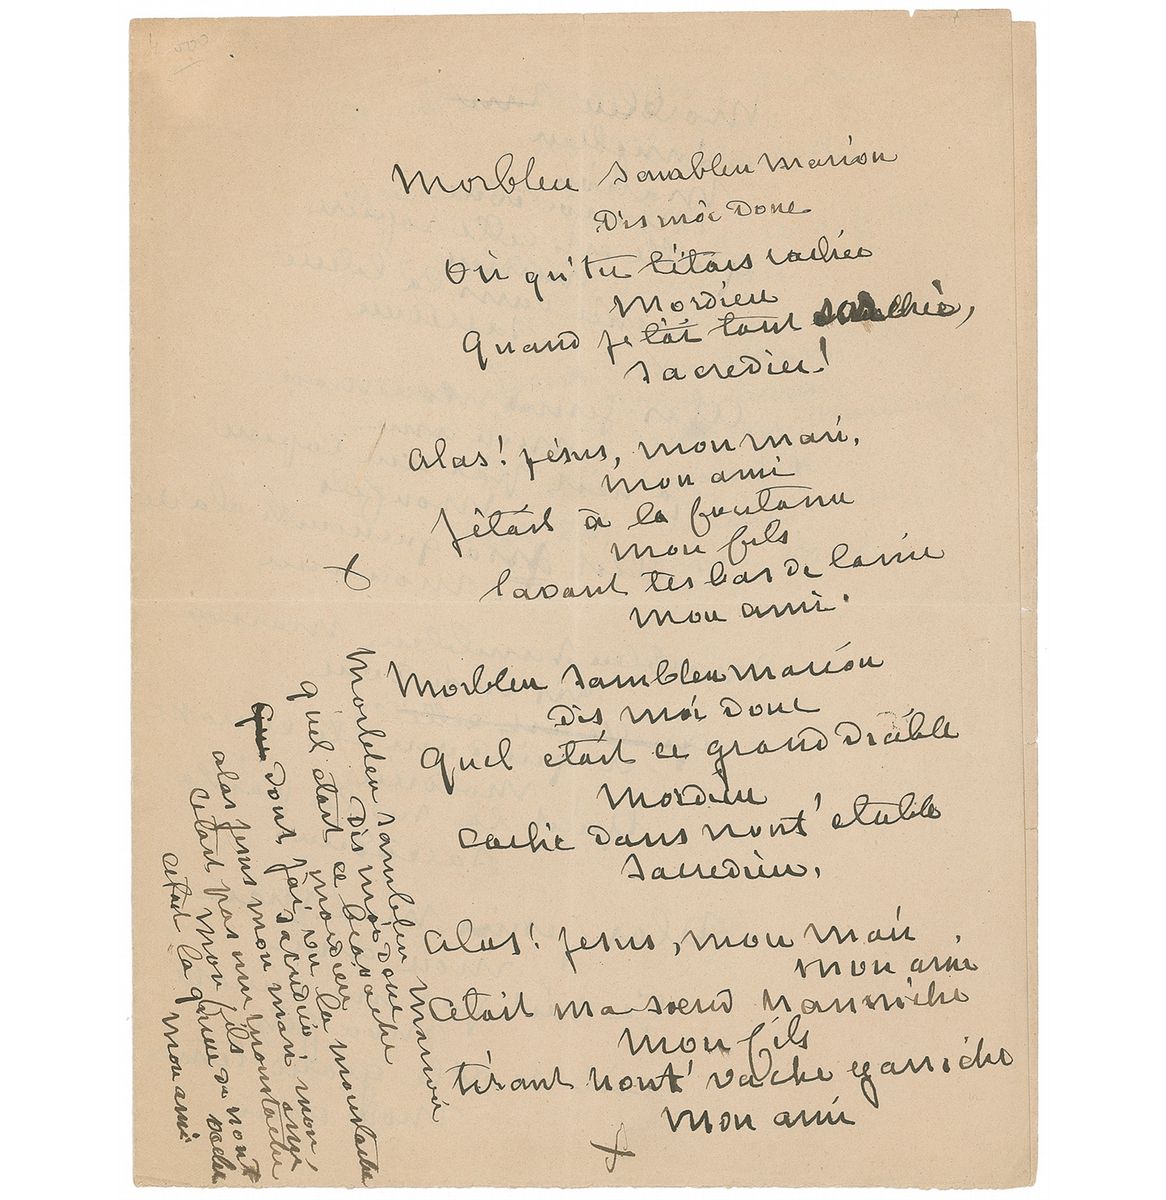 Morbleu sambleu Marion
Dis moi Donc
Où qu'tu t'étais cachée
Mordieu
Quand je t'ai tant
sacredieu!
Alas! Jésus, mon mari,
mon ami
J'étais à la fontanu
mon fils
lavant tes bas de lanie
mon ami.
Morbleu sambleu Marion
Dis moi Donc
Quel était ce grand Diable
Mordieu
caché dans nont' étable
sacredieu.
Alas! Jesus, mon mari
mon ami
C'était ma soeud nanniche
mon fils
tirant nont' vache garriche
mon ami
Morbleu sambleu
Dis moi donc
quel était ce bravache
mordieu
Dont j'ai vu la moustache
sacredié.
alas jesus mon mari mon
ami
cétait pas une moustache
mon fils
cétait la queue de nont vache
mon ami